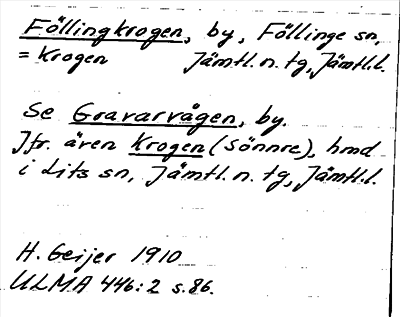 Föllingkrogen, by, Föllinge sn,
= Krogen Jämtl. n. tg, Jämtl. l.
Se Gravarvågen, by.
Jfr. även Krogen (Sönnre), hmd
i Lits sn, Jämtl. n. tg, Jämtl. l.
H. Geijer 1910
ULMA 446:2 s. 86.